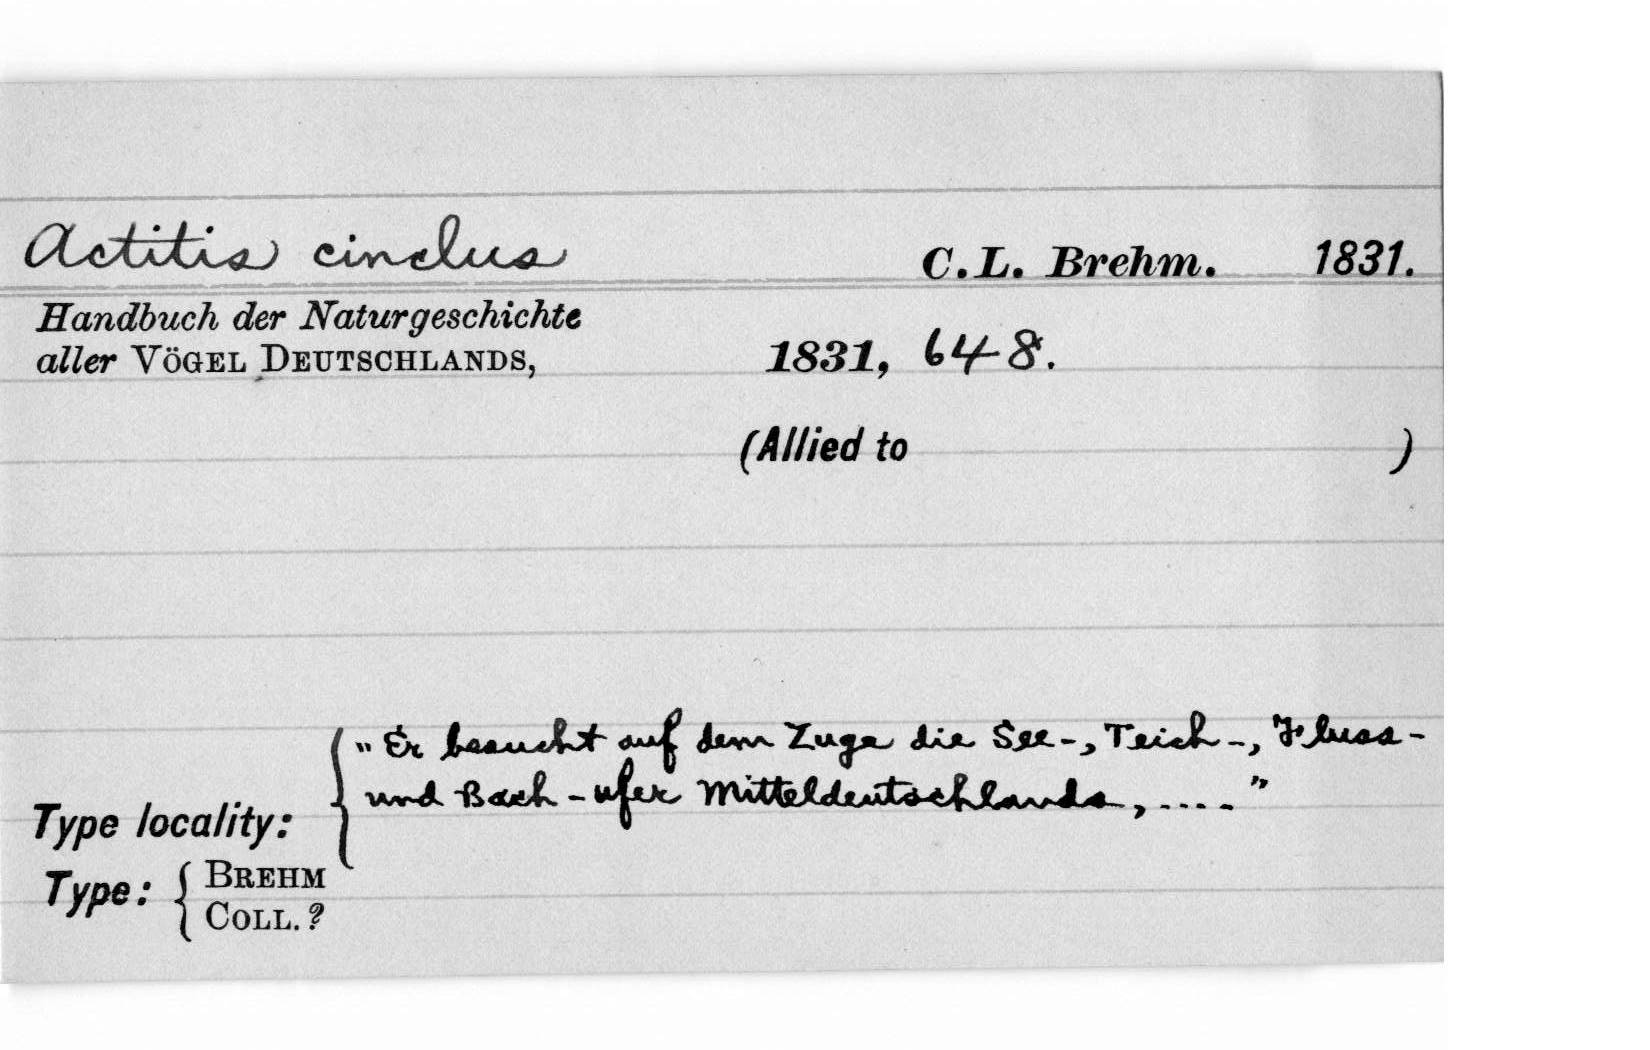 Actitis cinclus C. L. Brehm. 1831.
Handbuch der Naturgeschichte
aller VÖGEL DEUTSCHLANDS, 1831, 648.
(Allied to )
„Er besucht auf dem Zuge die See-, Teich-, Fluss-
und Bach-ufer Mitteldeutschlands, ....”
Type locality:
Type: { BREHM
COLL. ?